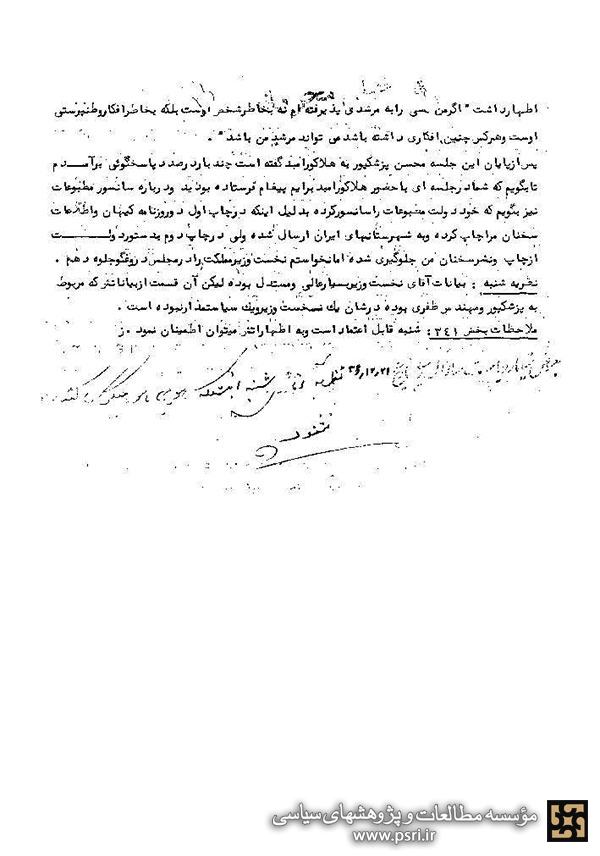 اظهار داشت " اگر من کسی را به مرشدی پذیرفته ام نه بخاطر شخص اوست بلکه بخاطر افکار وطنپرستی
اوست وهرکس چنین افکاری داشته باشد می تواند مرشد من باشد " .
پس از پایان این جلسه محسن پزشکپور به هلاکو رامبد گفته است چند بار در صدد پاسخگوئی برآمدم
تا بگویم که شما در جلسه ای با حضور هلاکو رامبد برایم پیغام فرستاده بودید و درباره سانسور مطبوعات
نیز بگویم که خود دولت مطبوعات را سانسور کرده بدلیل اینکه در چاپ اول دو روزنامه کیهان و اطلاعات
سخنان مرا چاپ کرده و به شهرستانهای ایران ارسال شده ولی در چاپ دوم بدستور دولت
از چاپ و نشر سخنان من جلوگیری شده اما نخواستم نخست وزیر مملکت را در مجلس دروغگو جلوه دهم .
نظریه شنبه : بیانات آقای نخست وزیر بسیار عالی و مستدل بوده لیکن آن قسمت از بیاناتش که مربوط
به پزشکپور و مهندس ظفری بوده در شان یك نخست وزیر ویك سیاستمدار نبوده است .
ملاحظات بخش ۳۴۱ : شنبه قابل اعتماد است و به اظهاراتش میتوان اطمینان نمود . ز
۳۶/۱۲/۲۱ نظریه
شنبه اینستکه
مؤسسه مطالعات و پژوهشهای سیاسی
www.psri.ir